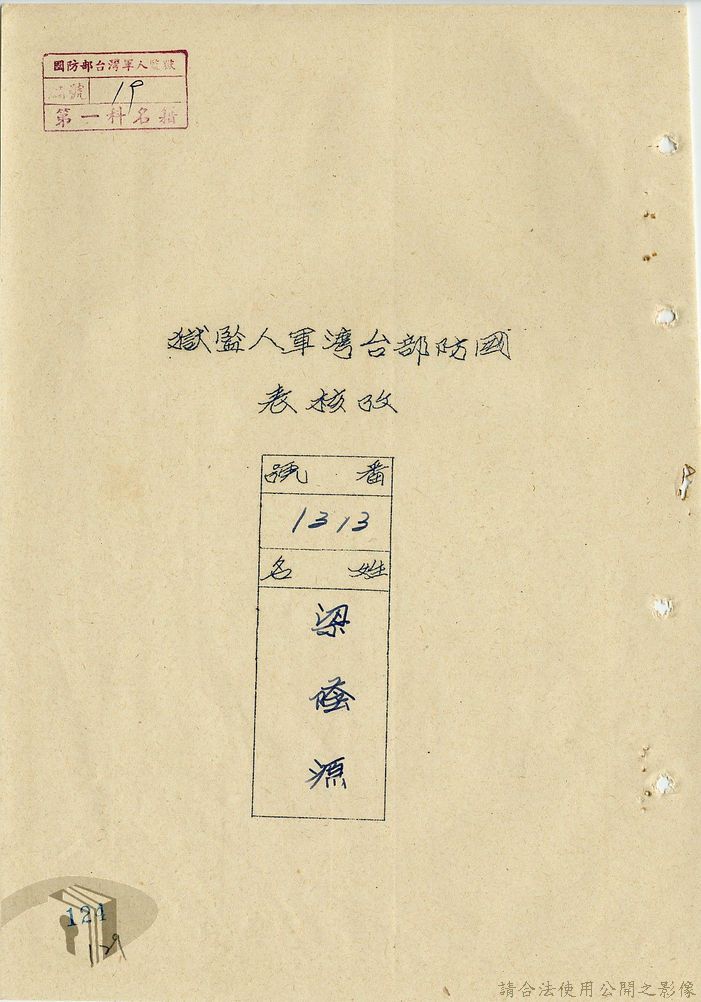 國防部台灣軍人監獄
號 19
第一科名籍
國防部台灣軍人監獄
攷核表
番號
1313
姓名
梁蔭源
124
129
請合法使用公開之影像